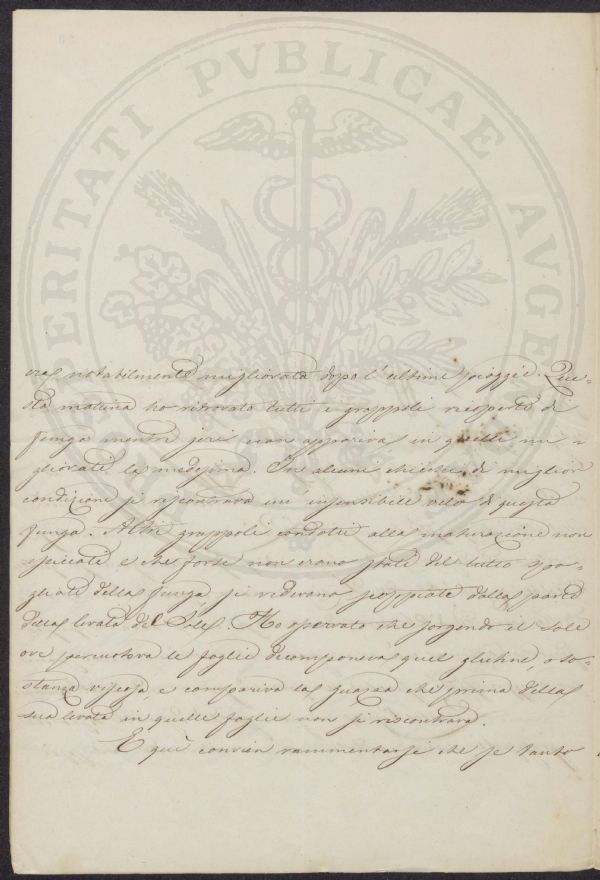 PROSPERITATI PVBLICAE AVGENDAE
era notabilmente migliorata dopo l'ultime pioggie. Que-
sta matina ho ritrovato tutti i grappoli ricoperti di
funga mentre jeri non appariva in quelli mi-
gliorati la medesima. In alcuni chicchi di miglior
condizione si riscontrava un' insensibile velo di questa
funga. Altri grappoli condotti alla maturazione non
spiccati e che forse non erano stati del tutto spo-
gliati della funga si vedevano scoppiati dalla parte
della levata del Sole. Ho osservato che sorgendo il Sole
ove percuoteva le foglie decomponeva quel glutine, o so-
stanza viscosa, e compariva la guazza che prima della
sua levata in quelle foglie non si riscontrava.
E qui convien rammentarsi che se tanto